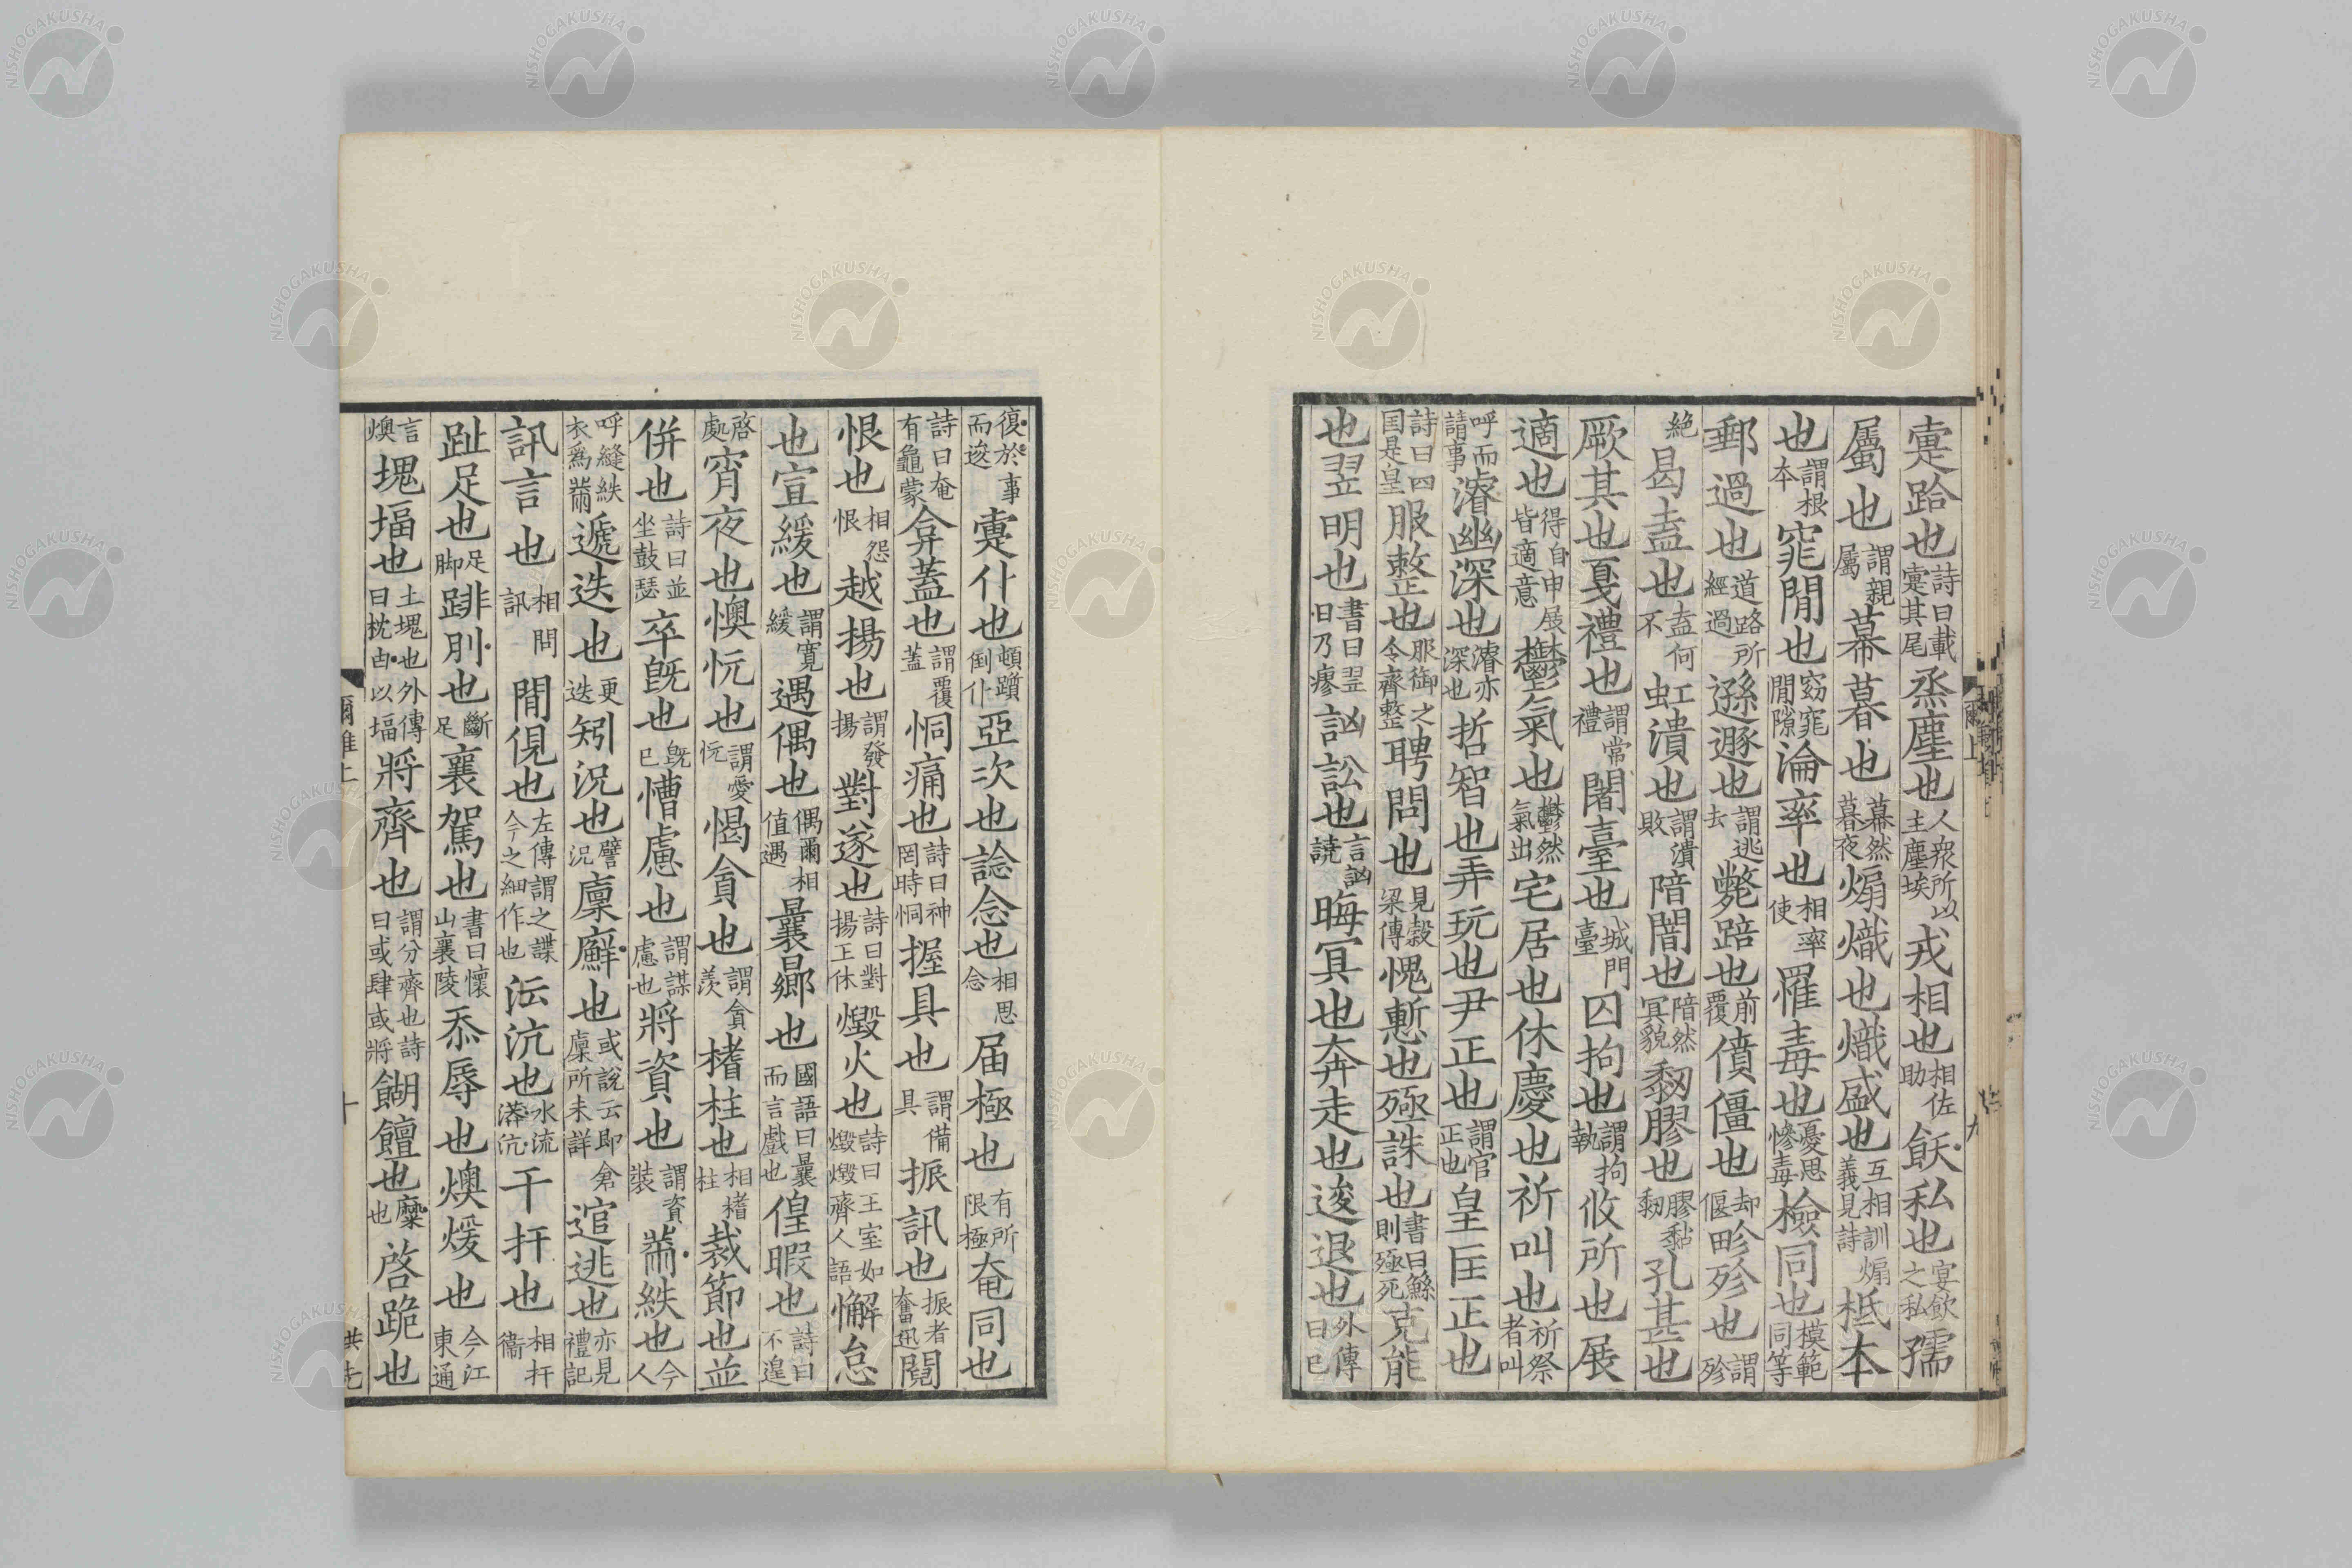 疐跲也詩曰載疐其尾烝塵也人衆所以主塵埃戎相也相佐助飫私也宴飲之私孺
屬也謂親屬幕暮也幕然暮夜煽熾也熾盛也互相訓煽義見詩柢本
也謂根本窕閒也窈窕閒隙淪率也相率使罹毒也憂思慘毒檢同也模範同等
郵過也道路所經過遜遯也謂逃去斃踣也前覆僨僵也却偃畛殄也謂殄
絶曷盍也盍何不虹潰也謂潰敗陪闇也陪然冥貌䵒膠也膠黏䵒孔甚也
厥其也戛禮也謂常禮闍臺也城門臺囚拘也謂拘執攸所也展
適也得自申展皆適意鬱氣也鬱然氣出宅居也休慶也祈叫也祈祭者叫
呼而請事濬幽深也濬亦深也哲智也弄玩也尹正也謂官正也皇匡正也
詩曰四国是皇服整也服御之令齊整聘問也見穀梁傳愧慙也殛誅也書曰鯀則殛死克能
也翌明也書曰翌日乃瘳訩訟也言訩譊晦冥也奔走也逡退也外傳曰已
復於事而逡疐仆也頓躓倒仆亞次也諗念也相思念届極也有所限極奄同也
詩曰奄有龜蒙弇蓋也謂覆蓋恫痛也詩曰神罔時恫握具也謂備具振訊也振者奮迅鬩
恨也相怨恨越揚也謂發揚對遂也詩曰對揚王休燬火也詩曰王室如燬燬齊人語懈怠
也宣緩也謂寬緩遇偶也偶爾相值遇曩曏也國語曰曩而言戲也偟暇也詩曰不遑
啓處宵夜也懊忨也謂愛忨愒貪也謂貪羨榰柱也相榰柱裁節也並
併也詩曰並坐鼓瑟卒旣也旣已慒慮也謂謀慮也將資也謂資裝黹紩也今人
呼縫紩衣爲黹遞迭也更迭矧況也譬況廩廯也或說云即倉廩所未詳逭逃也亦見禮記
訊言也相問訊閒俔也左傳謂之諜今之細作也沄沆也水流漭沆干扞也相扞衞
趾足也足脚跀刖也斷足襄駕也書曰懷山襄陵忝辱也燠煖也今江東通
言燠塊堛也土塊也外傳曰枕凷以堛將齊也謂分齊也詩曰或肆或將餬饘也糜也啓跪也